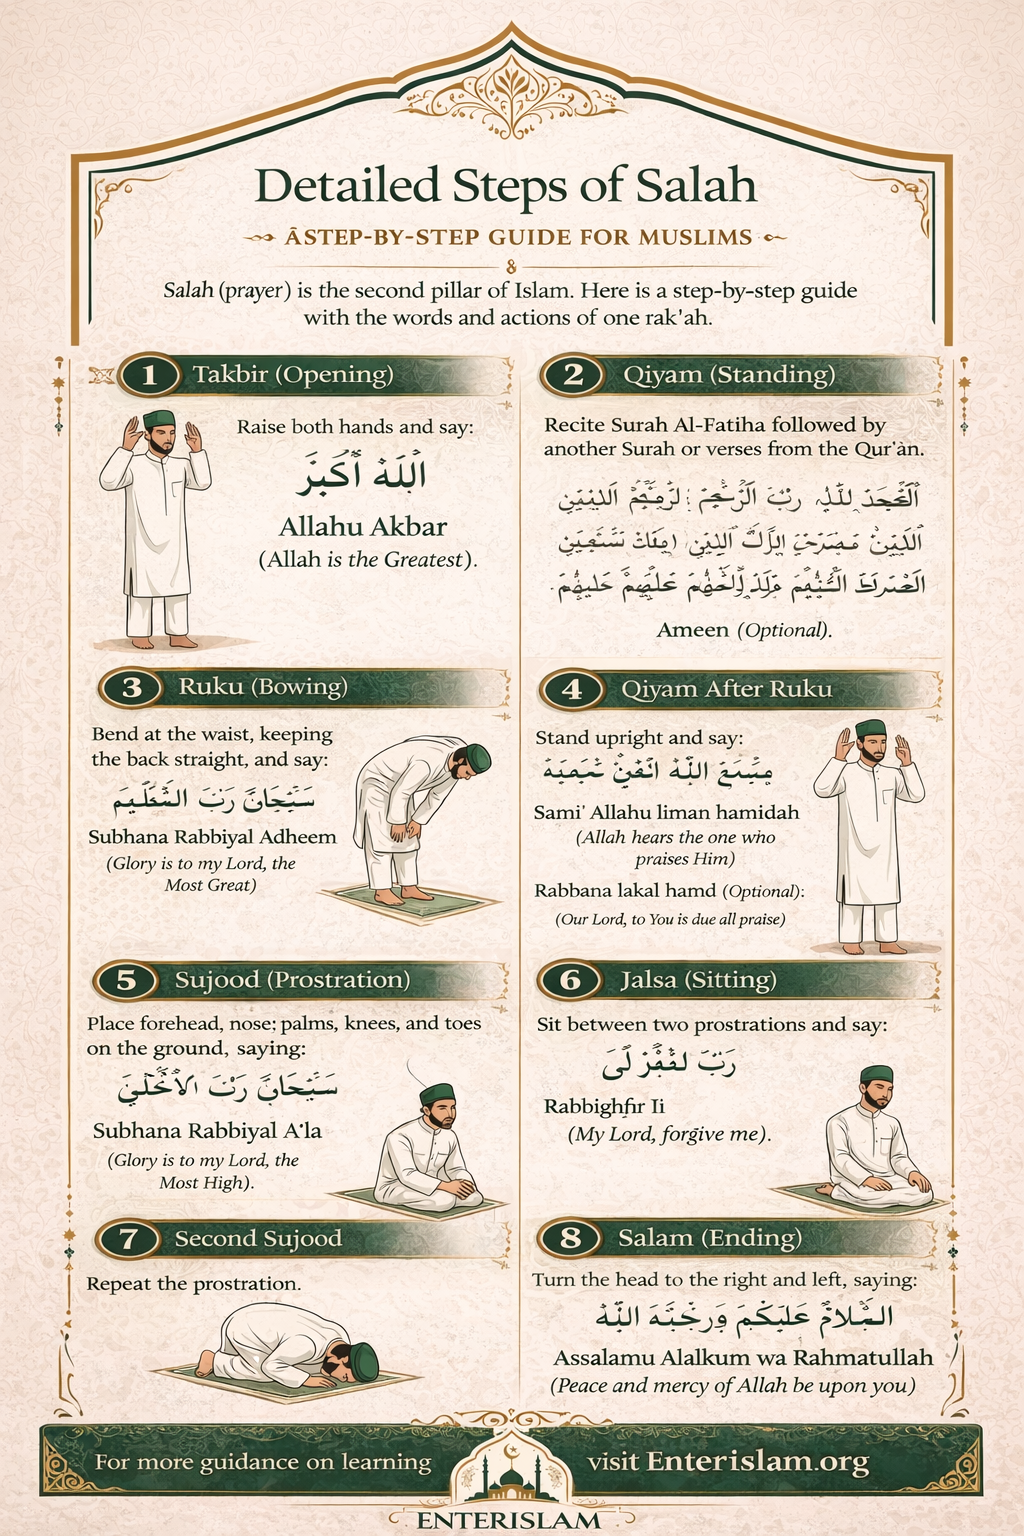 Detailed Steps of Salah
ĀSTEP-BY-STEP GUIDE FOR MUSLIMS
Salah (prayer) is the second pillar of Islam. Here is a step-by-step guide
with the words and actions of one rak'ah.
1 Takbir (Opening)
Raise both hands and say:
Allahu Akbar
(Allah is the Greatest).
2 Qiyam (Standing)
Recite Surah Al-Fatiha followed by
another Surah or verses from the Qur'àn.
Ameen (Optional).
3 Ruku (Bowing)
Bend at the waist, keeping
the back straight, and say:
Subhana Rabbiyal Adheem
(Glory is to my Lord, the
Most Great)
4 Qiyam After Ruku
Stand upright and say:
Sami' Allahu liman hamidah
(Allah hears the one who
praises Him)
Rabbana lakal hamd (Optional):
(Our Lord, to You is due all praise)
5 Sujood (Prostration)
Place forehead, nose; palms, knees, and toes
on the ground, saying:
Subhana Rabbiyal A'la
(Glory is to my Lord, the
Most High).
6 Jalsa (Sitting)
Sit between two prostrations and say:
Rabbighfir Ii
(My Lord, forgive me).
7 Second Sujood
Repeat the prostration.
8 Salam (Ending)
Turn the head to the right and left, saying:
Assalamu Alalkum wa Rahmatullah
(Peace and mercy of Allah be upon you)
For more guidance on learning
visit Enterislam.org
ENTERISLAM